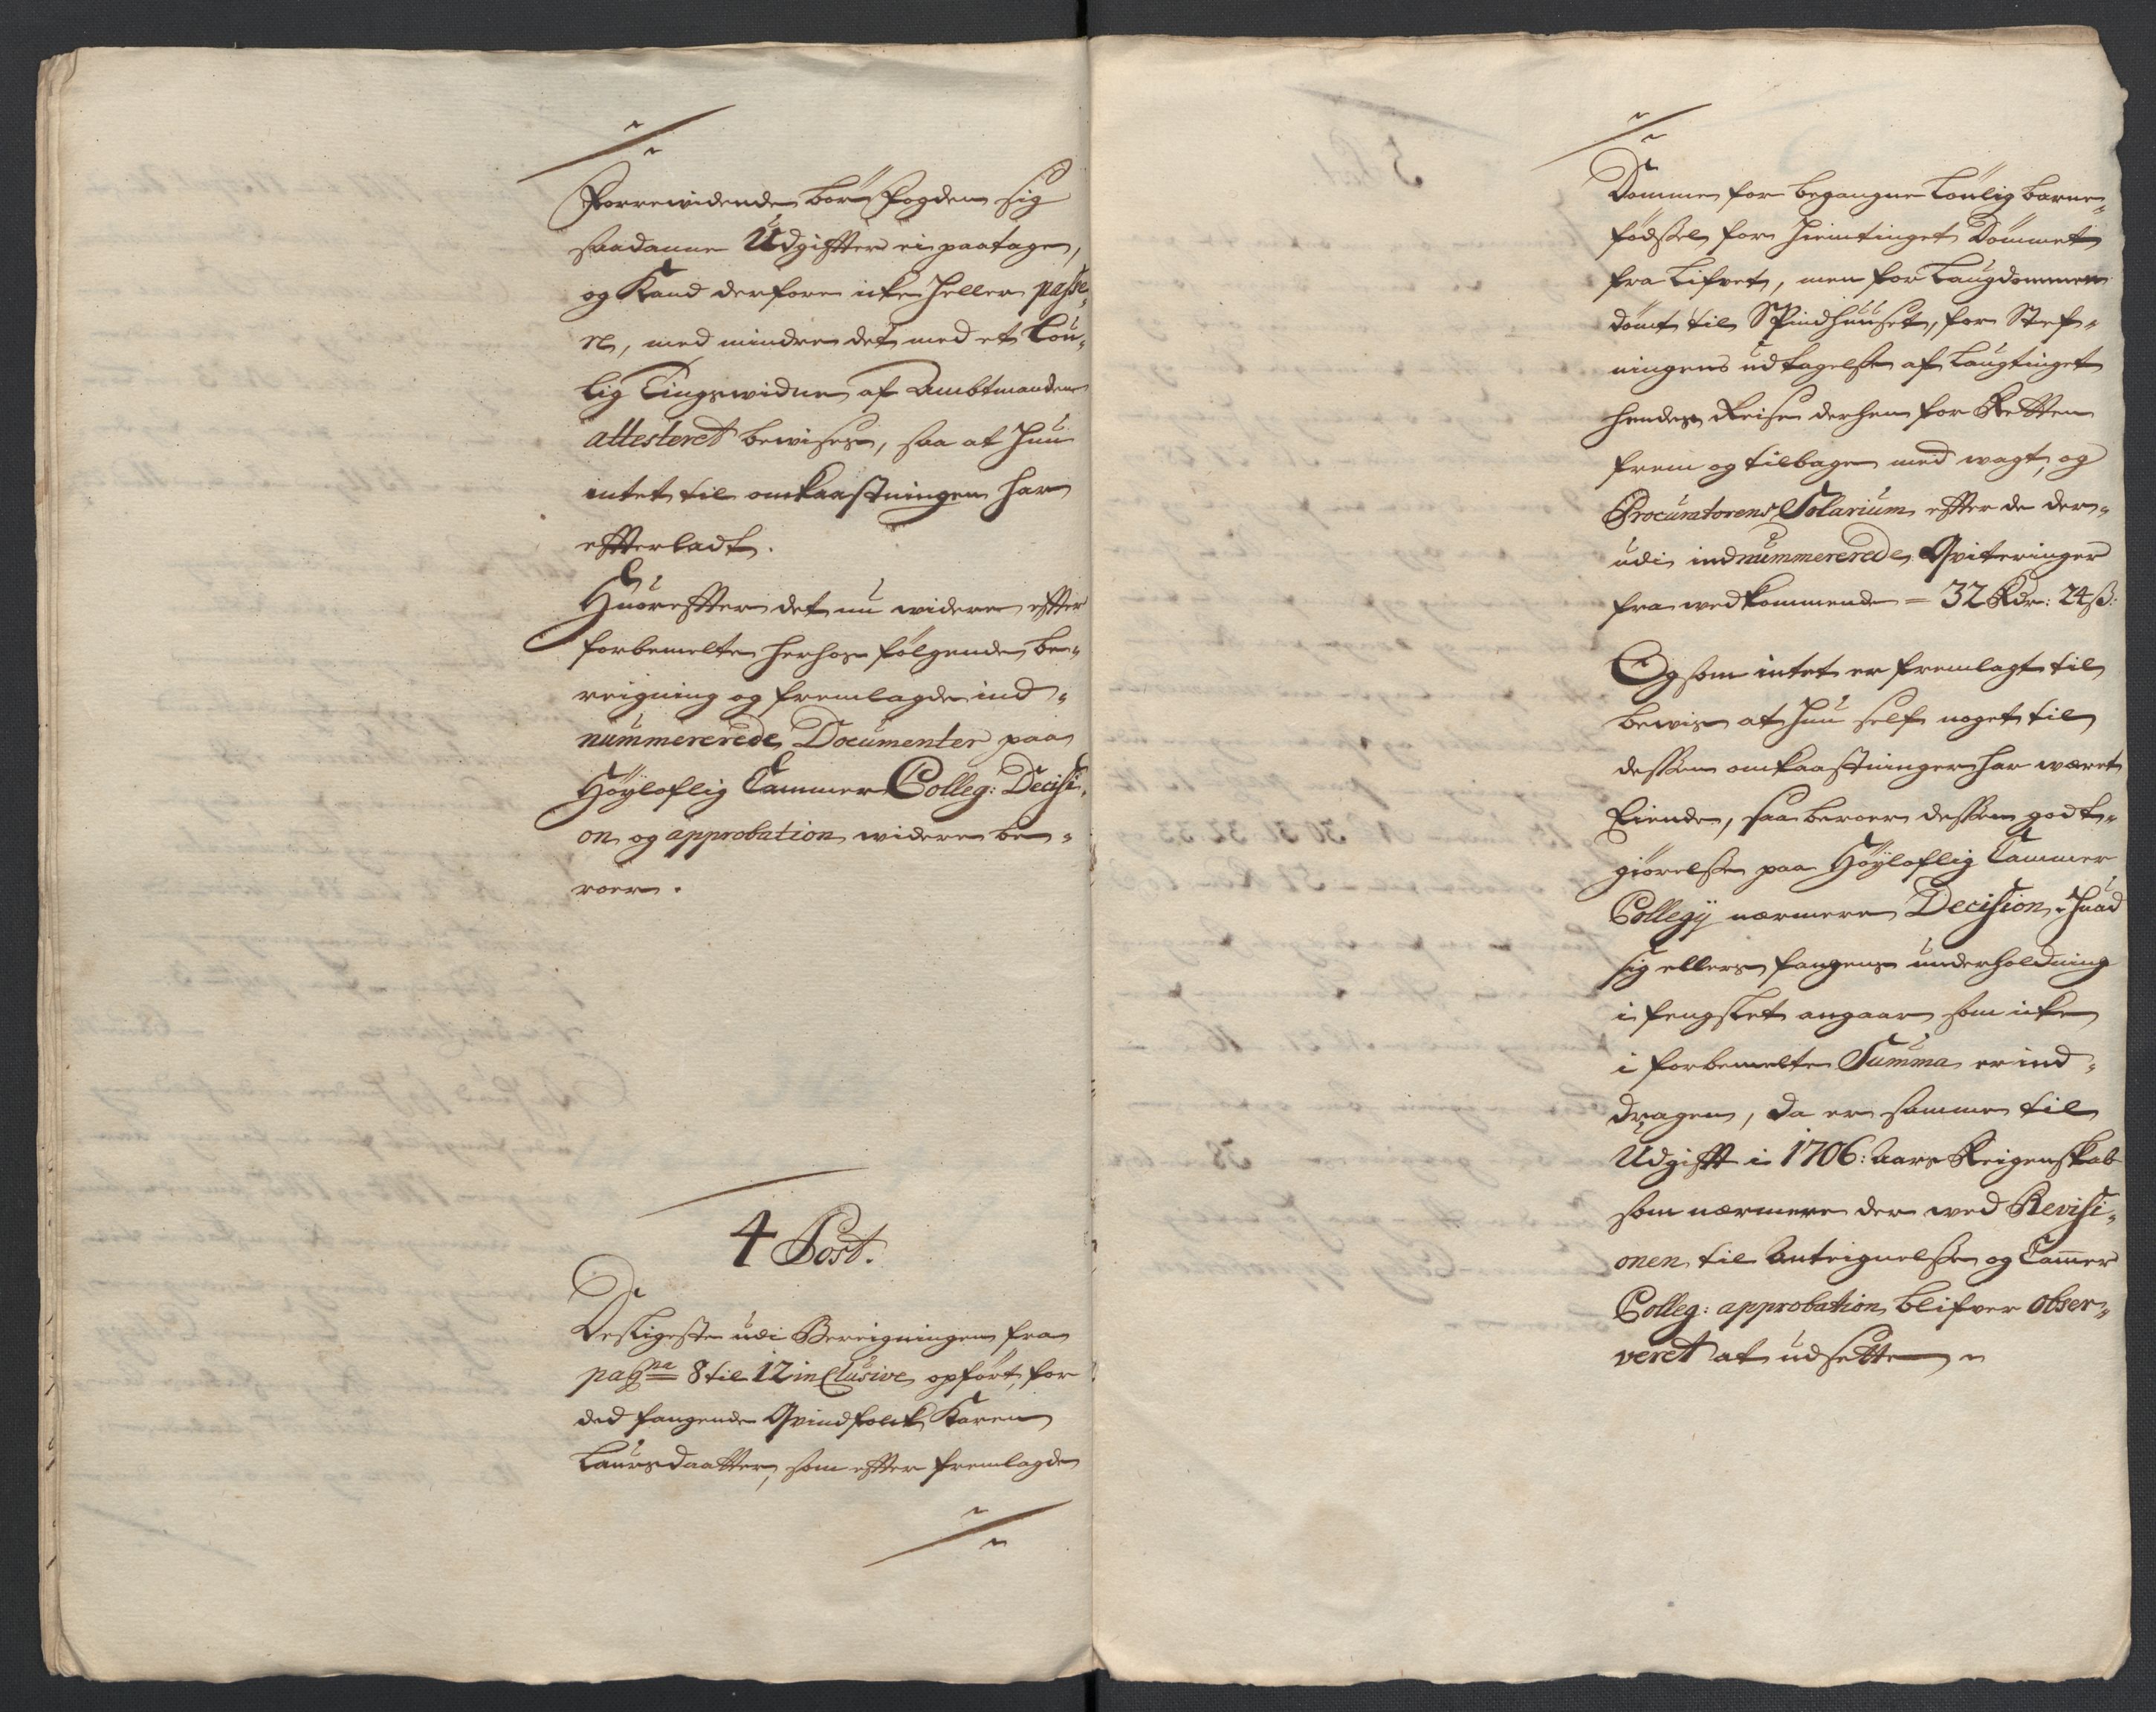 Forrewidende bør Fogden sig
saadanne Udgiffter ei paatage,
og Kand derfore icke heller passe-
re, med mindre det med et Lou-
lig Tingswidne af Ambtmanden
attesteret bewises, saa at hun
intet til omkaastningen har
effterladt.
Huoreffter det nu widere effter
forbemelte herhos følgende be-
reigning og fremlagde ind-
nummererede Documenter paa
Høyloflig Cammer Colleg: Decisi-
on og approbation widere be-
roer.
4 Post.
Desligeste udi Bereigningen fra
pagne 8 til 12 inclusive opført, for
ded fangende Qvindfolck Karen
Laursdaatter, som effter fremlagde
Domme for begangne Lønlig barne-
fødsel for Hiemtinget Dømmet
fra Lifvet, men for Laugdommen
dømt til Spindhuuset, for Stef-
ningens udtagelse af Laugtinget
hendes Reise derhen for Retten
frem og tilbage med wagt, og
Procuratorens Solarium effter de der-
udi indnummererede Qviteringer
fra wedkommende = 32 Rdr: 24 ß:
Og som intet er fremlagt til
bewis at hun self noget til
dessen omkaastninger har været
Eiende, saa beroer dessen godt-
giørelse paa Høyloflig Cammer
Collegij nærmere Decision, huad
sig ellers fangens underholdning
i fengslet angaar som icke
i forbemelte Summa er ind-
dragen, da er samme til
Udgifft i 1706: Aars Reigenskab
som nærmere der wed Revisi-
onen til Anteignelse og Cammer
Colleg: approbation blifver obser-
veret at udsette